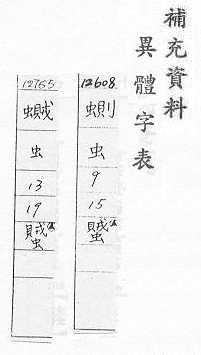 補充資料
異體字表
12608
虫
9
15
12765
蠈
虫
13
19